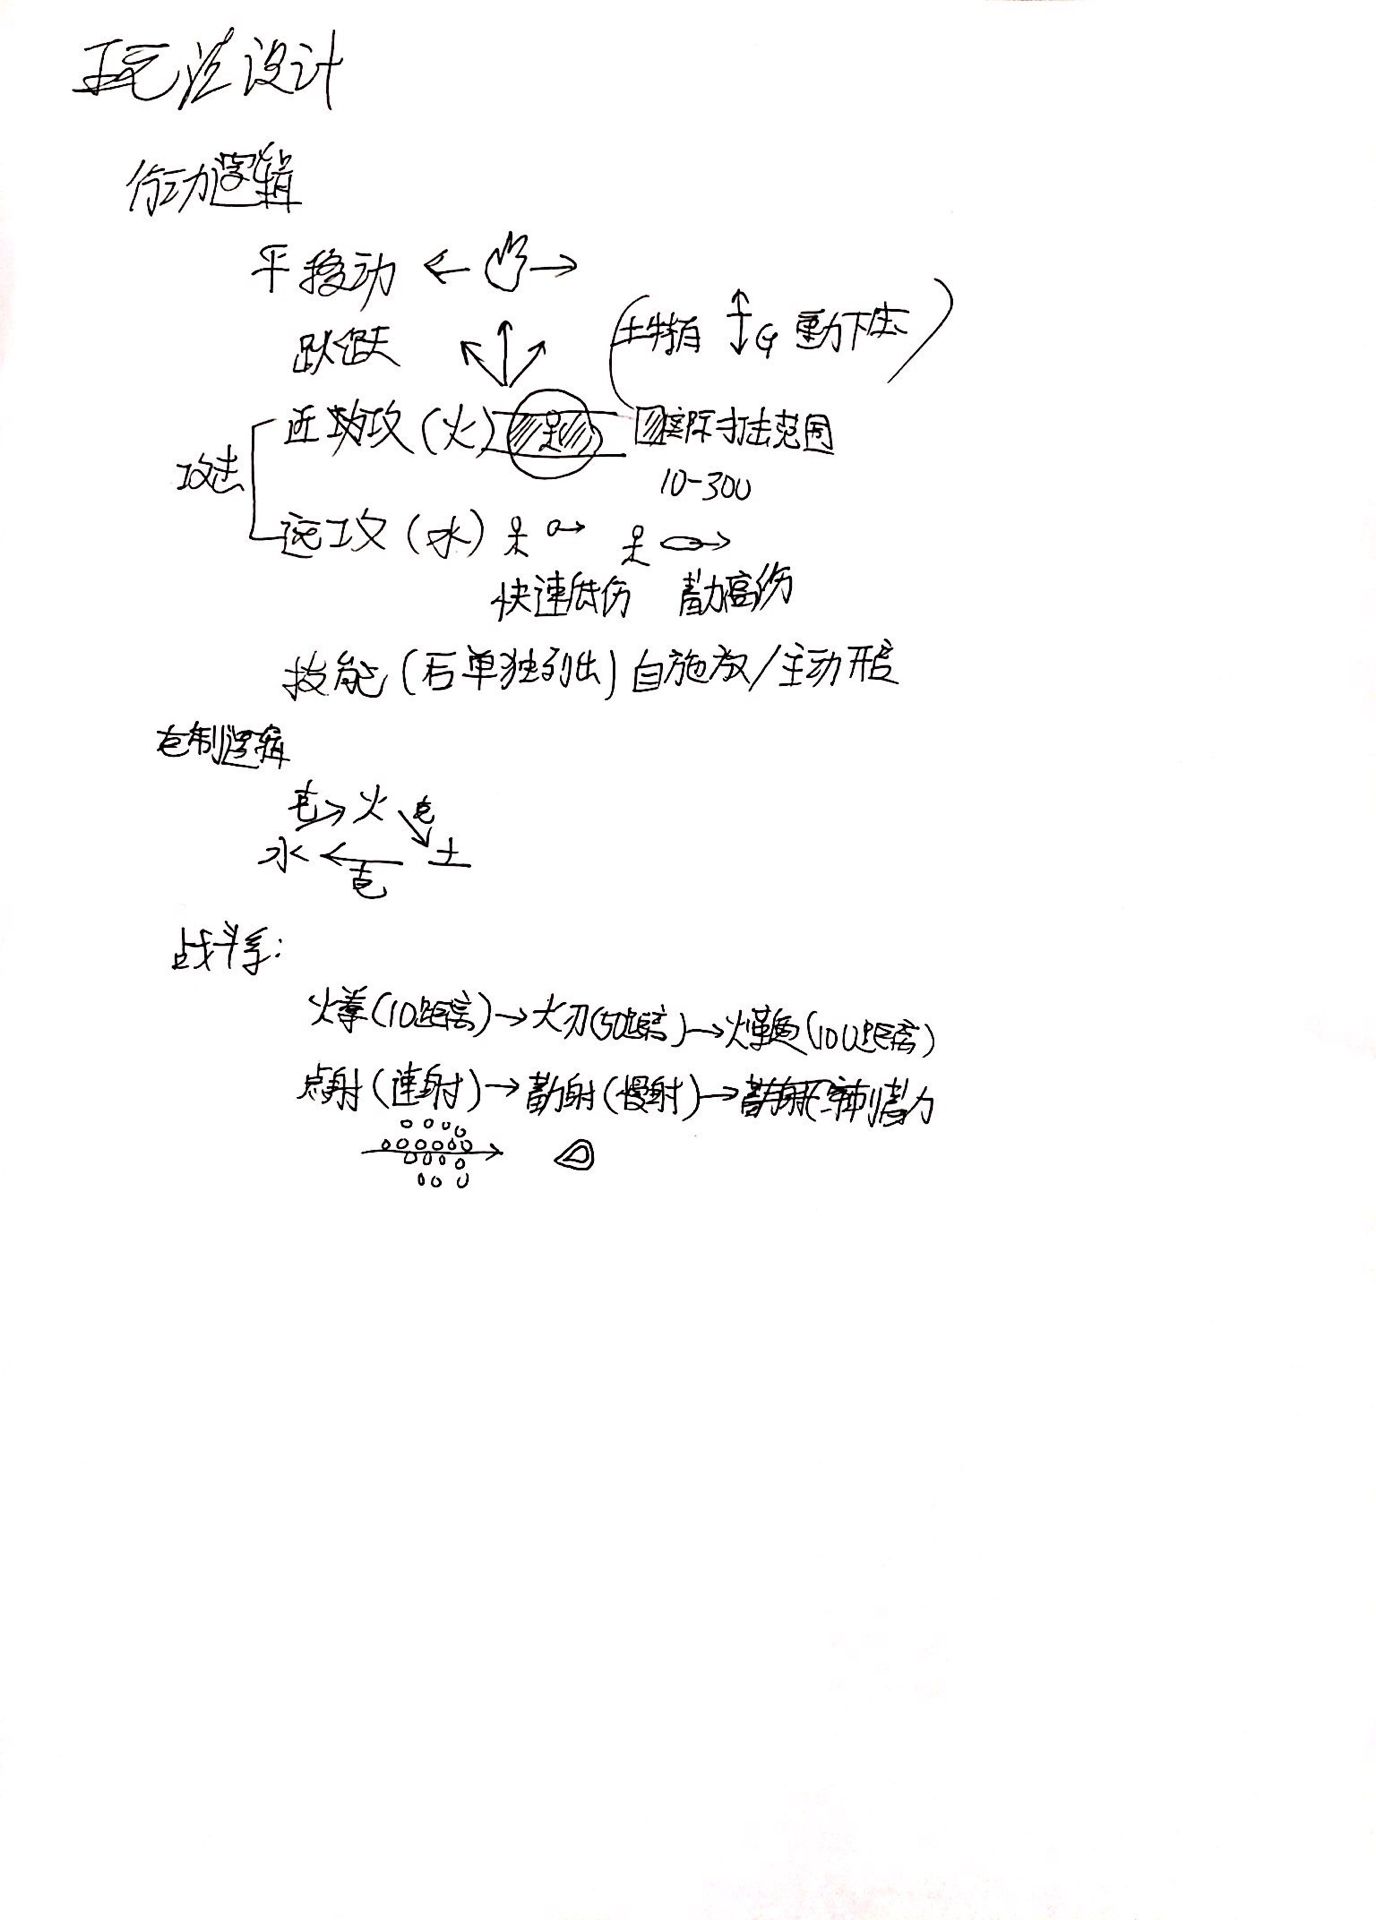 玩法设计
行动逻辑
平移动
跳跃
(土特有 G 重力下压)
攻击
近攻(火) 实际打击范围
10-300
远攻(水)
快速低伤 蓄力高伤
技能(后单独列出)自施放/主动开启
克制逻辑
克 火 克
水 土
克
战斗系:
火拳(10距离)→火刃(50距离)→火鞭(100距离)
点射(连射)→蓄力射(慢射)→蓄力射 蓄力